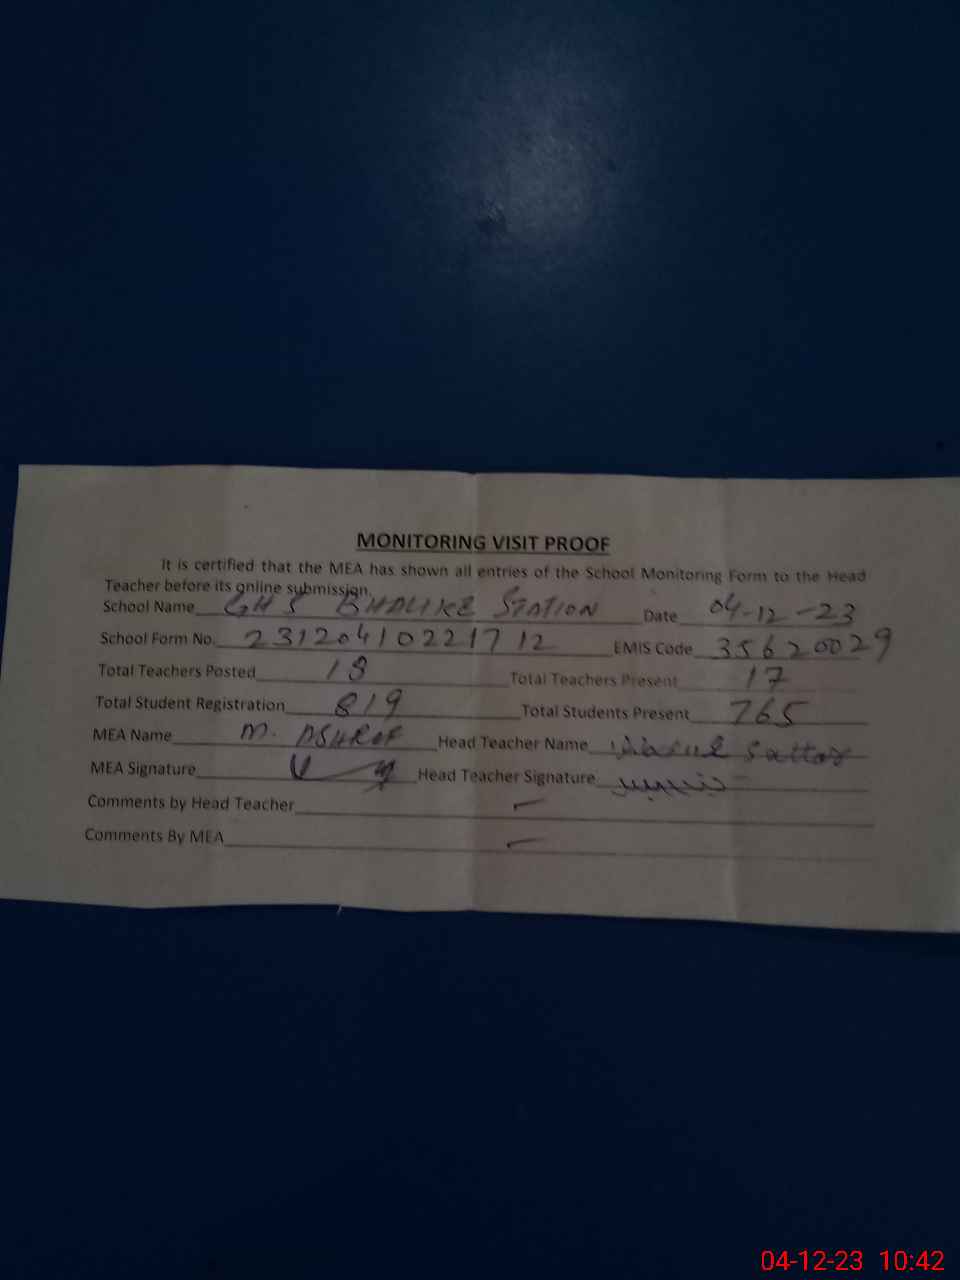 MONITORING VISIT PROOF
It is certified that the MEA has shown all entries of the School Monitoring Form to the Head
Teacher before its online submission.
School Name GHS BHALIKE STATION Date 04-12-23
School Form No. 23120410221712 EMIS Code 35620029
Total Teachers Posted 18 Total Teachers Present 17
Total Student Registration 819 Total Students Present 765
MEA Name M. ASHRAF Head Teacher Name Sattar
MEA Signature Head Teacher Signature
Comments by Head Teacher
Comments By MEA
04-12-23 10:42